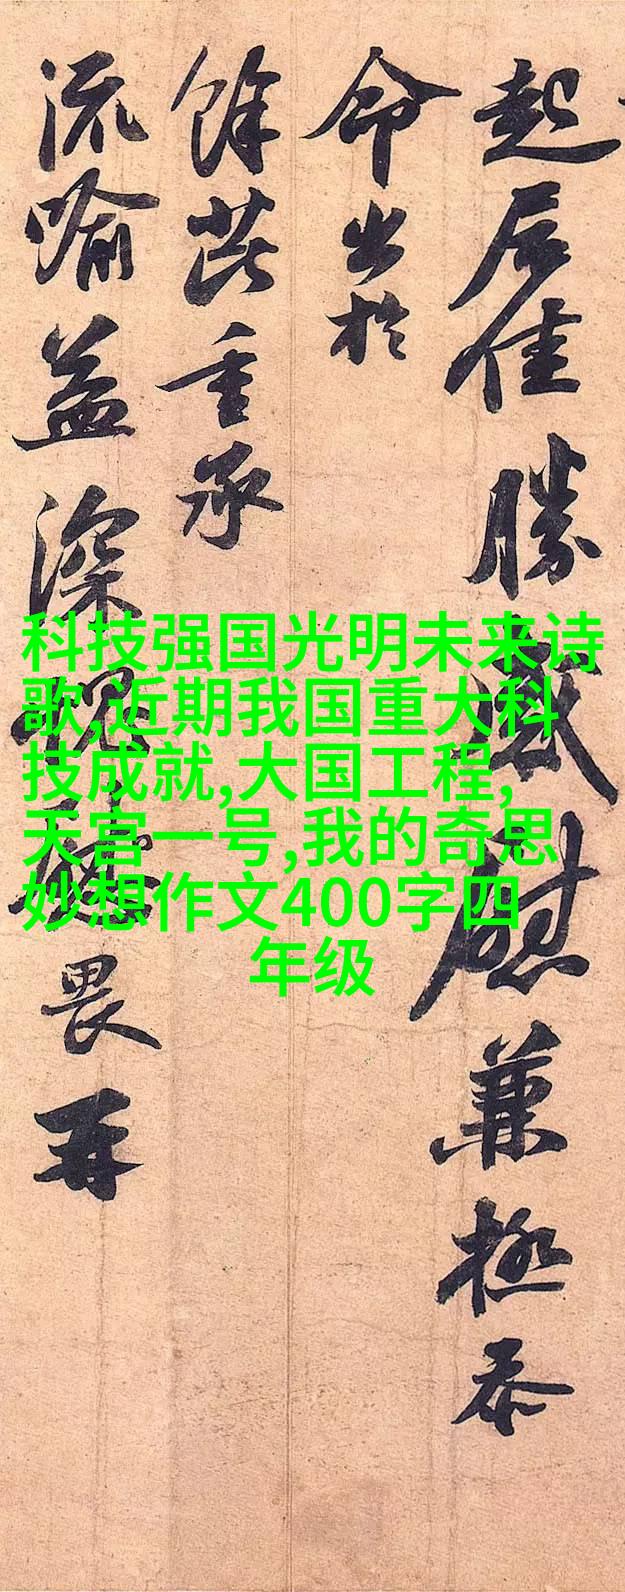 起居佳勝感慰兼極泰
命出於
餘芷重承
流喻益深愧
畏再
科技强国光明未来诗
歌,近期我国重大科
技成就,大国工程,
天宫一号,我的奇思
妙想作文400字四
年级